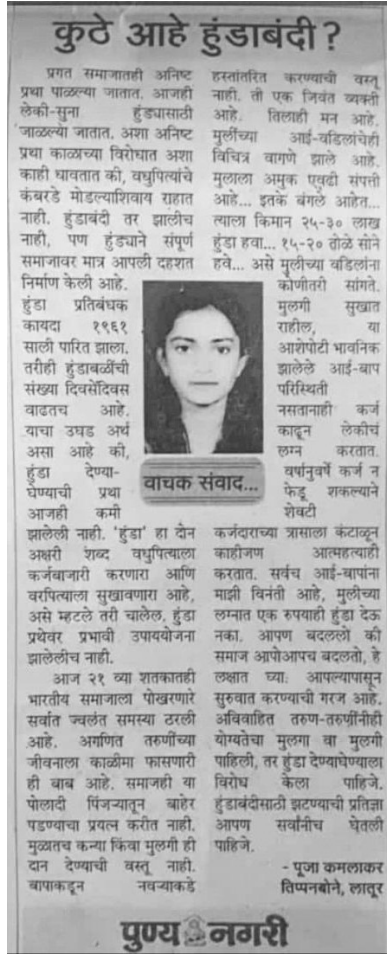 कुठे आहे हुंडाबंदी ?
प्रगत समाजातही अनिष्ट
प्रथा पाळल्या जातात. आजही
लेकी-सुना हुंड्यासाठी
जाळल्या जातात. अशा अनिष्ट
प्रथा काळाच्या विरोधात अशा
काही धावतात की, वधुपित्यांचे
कंबरडे मोडल्याशिवाय राहात
नाही. हुंडाबंदी तर झालीच
नाही, पण हुंड्याने संपूर्ण
समाजावर मात्र आपली दहशत
निर्माण केली आहे.
हुंडा प्रतिबंधक
कायदा १९६१
साली पारित झाला.
तरीही हुंडाबळींची
संख्या दिवसेंदिवस
वाढतच आहे.
याचा उघड अर्थ
असा आहे की,
हुंडा देण्या-
घेण्याची प्रथा
आजही कमी
झालेली नाही. 'हुंडा' हा दोन
अक्षरी शब्द वधुपित्याला
कर्जबाजारी करणारा आणि
वरपित्याला सुखावणारा आहे,
असे म्हटले तरी चालेल. हुंडा
प्रथेवर प्रभावी उपाययोजना
झालेलीच नाही.
आज २१ व्या शतकातही
भारतीय समाजाला पोखरणारे
सर्वात ज्वलंत समस्या ठरली
आहे. अगणित तरुणींच्या
जीवनाला काळीमा फासणारी
ही बाब आहे. समाजही या
पोलादी पिंजऱ्यातून बाहेर
पडण्याचा प्रयत्न करीत नाही.
मुळातच कन्या किंवा मुलगी ही
दान देण्याची वस्तू नाही.
बापाकडून नवऱ्याकडे
हस्तांतरित करण्याची वस्तू
नाही. ती एक जिवंत व्यक्ती
आहे. तिलाही मन आहे.
मुलींच्या आई-वडिलांचेही
विचित्र वागणे झाले आहे.
मुलाला अमुक एवढी संपत्ती
आहे... इतके बंगले आहेत...
त्याला किमान २५-३० लाख
हुंडा हवा... १५-२० तोळे सोने
हवे... असे मुलीच्या वडिलांना
कोणीतरी सांगते.
मुलगी सुखात
राहील, या
आशेपोटी भावनिक
झालेले आई-बाप
परिस्थिती
नसतानाही कर्ज
काढून लेकीचं
लग्न करतात.
वर्षानुवर्षे कर्ज न
फेडू शकल्याने
शेवटी
कर्जदाराच्या त्रासाला कंटाळून
काहीजण आत्महत्याही
करतात. सर्वच आई-बापांना
माझी विनंती आहे, मुलीच्या
लग्नात एक रुपयाही हुंडा देऊ
नका. आपण बदललो की
समाज आपोआपच बदलतो, हे
लक्षात घ्या. आपल्यापासून
सुरुवात करण्याची गरज आहे.
अविवाहित तरुण-तरुणींनीही
योग्यतेचा मुलगा वा मुलगी
पाहिली, तर हुंडा देण्याघेण्याला
विरोध केला पाहिजे.
हुंडाबंदीसाठी झटण्याची प्रतिज्ञा
आपण सर्वांनीच घेतली
पाहिजे.
- पूजा कमलाकर
तिप्पनबोने, लातूर
वाचक संवाद...
पुण्य नगरी